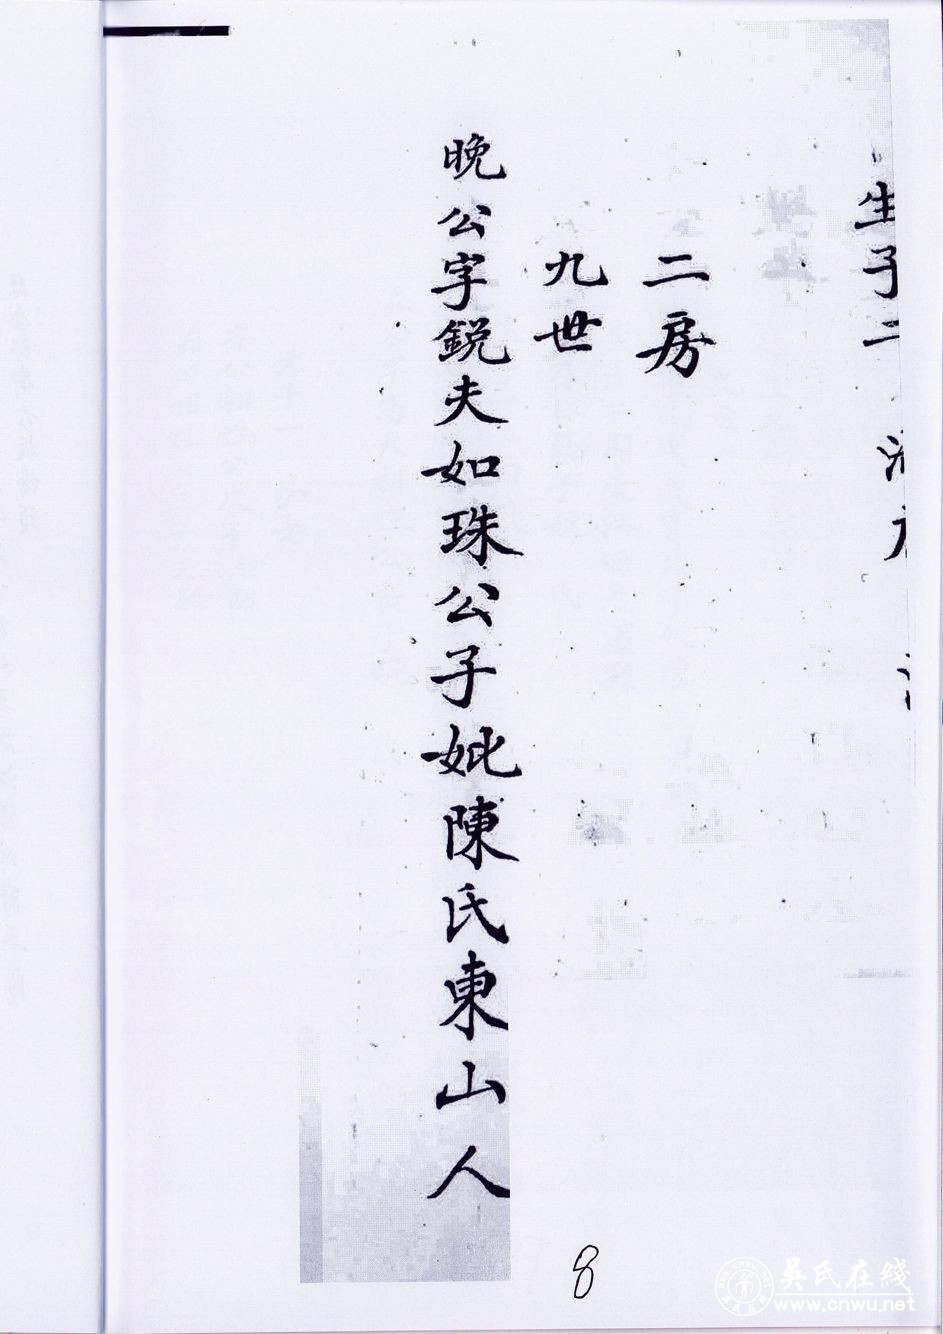 生子二
二房
九世
晚公字銳夫如珠公子妣陳氏東山人
8
吳氏在綫
www.cnwu.net